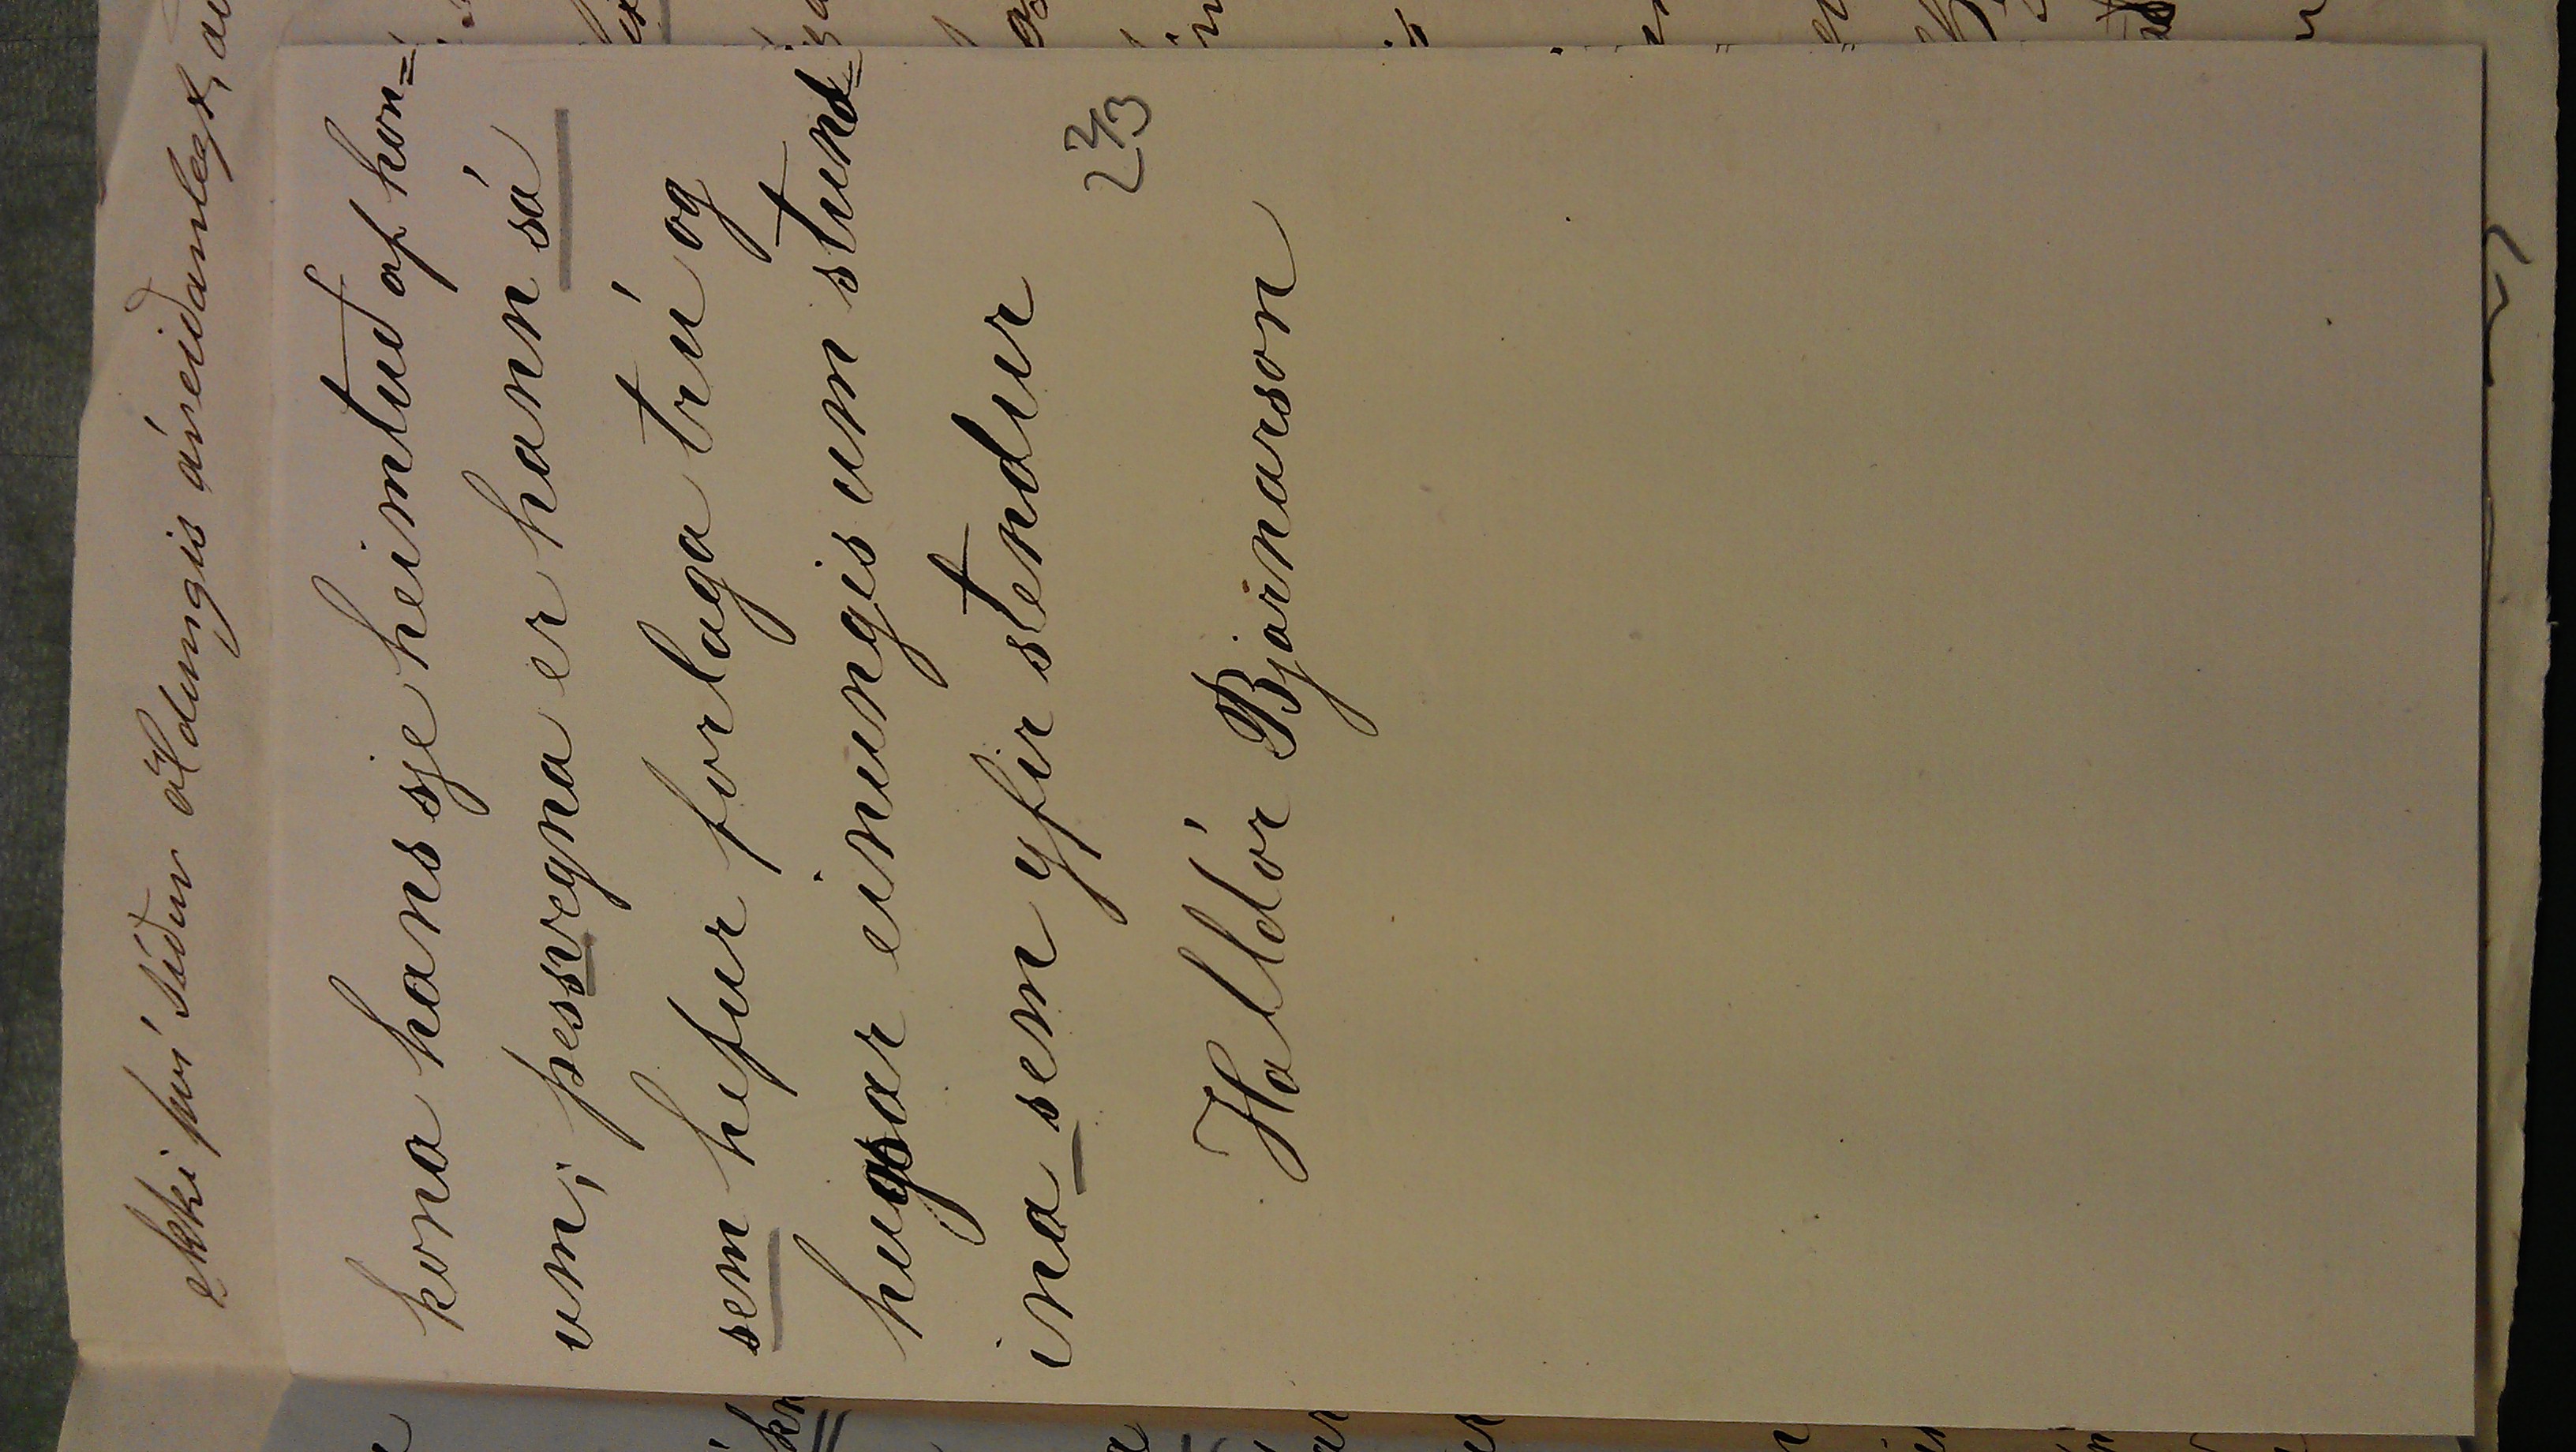 ekki því síður öldungis áreiðanlegt, að
kona hans sje heimtuð af hon=
um; þessvegna er hann sá
sem hefur forlaga trú og
hugsar einungis um stund=
ina sem yfir stendur
2 4/3
Halldór Bjarnarson